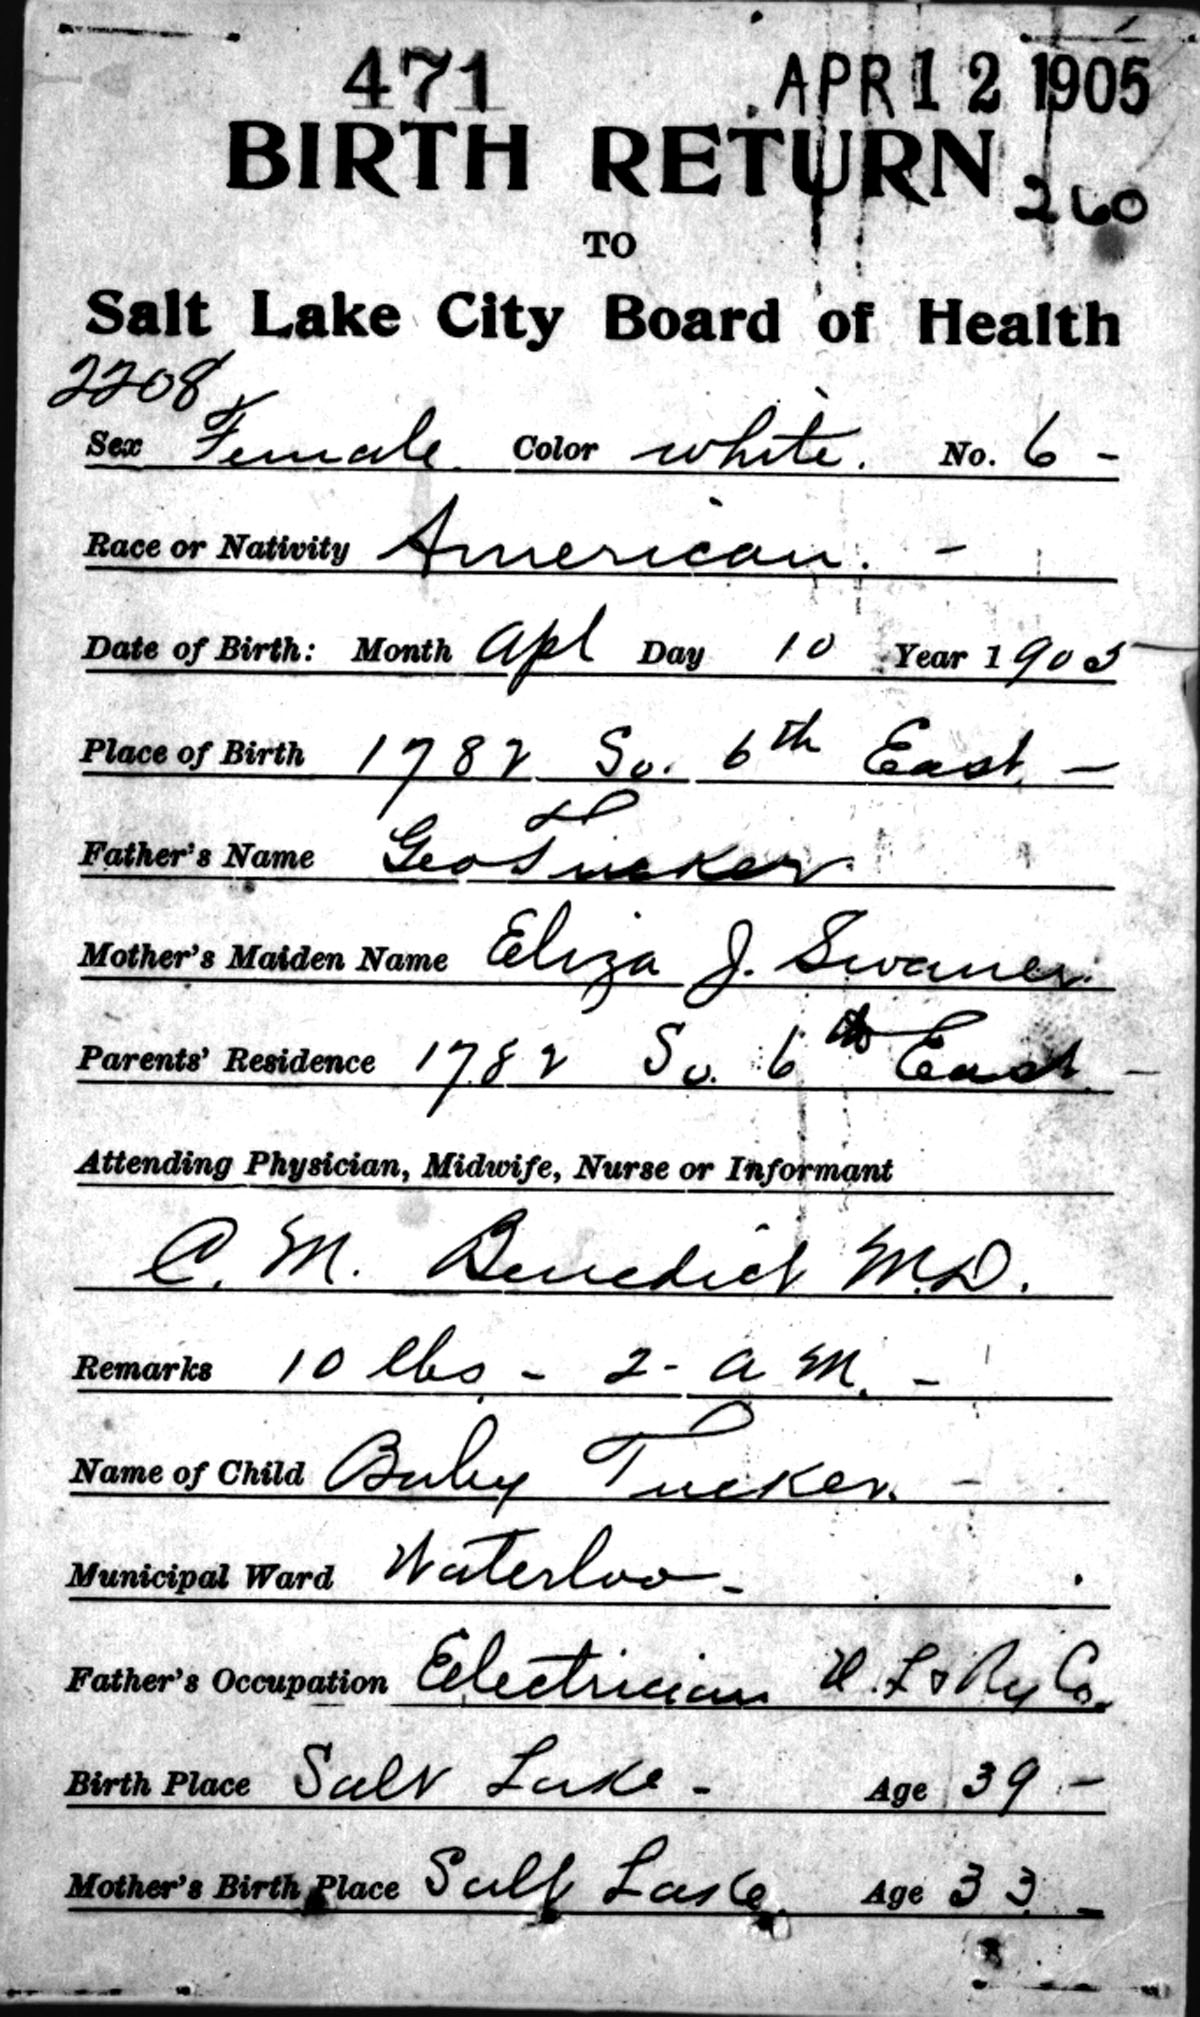 471 APR 12 1905
BIRTH RETURN
260
TO
Salt Lake City Board of Health
2208
Sex Female Color white. No. 6 -
Race or Nativity American. -
Date of Birth: Month Apl Day 10 Year 1905
Place of Birth 1782 So. 6th East -
Father's Name Geo Tucker
Mother's Maiden Name Eliza J. Swaner
Parents' Residence 1782 So. 6th East -
Attending Physician, Midwife, Nurse or Informant
C. M. Benedict M.D.
Remarks 10 lbs - 2 - a M. -
Name of Child Baby Tucker. -
Municipal Ward Waterloo -
Father's Occupation Electrician U. L & Ry Co.
Birth Place Salt Lake - Age 39 -
Mother's Birth Place Salt Lake Age 33 -